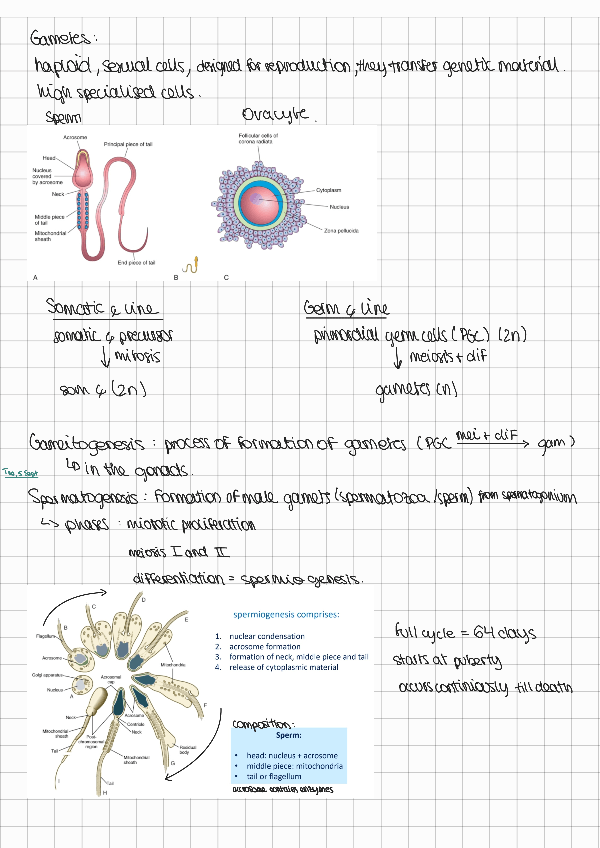 Gametes:
haploid, sexual cells, designed for reproduction, they transfer genetic material.
high specialised cells.
Sperm
Ovocyte.
Acrosome
Principal piece of tail
Head
Nucleus covered by acrosome
Neck
Middle piece of tail
Mitochondrial sheath
End piece of tail
A
B
Follicular cells of corona radiata
Cytoplasm
Nucleus
Zona pellucida
C
Somatic ϕ line
somatic ϕ precursor
↓ mitosis
som ϕ (2n)
Germ ϕ line
primordial germ cells (PGC) (2n)
↓ meiosis + dif
gametes (n)
Gameitogenesis : process of formation of gametes (PGC mei + dif → gam)
↳ in the gonads.
Tue, 5 Sept
Spermatogenesis : Formation of male gamets (spermatozoa / sperm) from spermatogonium
↳ phases : miototic proliferation
meiosis I and II
differentiation = spermio genesis.
A
B
C
D
E
F
G
H
I
Flagellum
Acrosome
Golgi apparatus
Nucleus
Acrosomal cap
Mitochondria
Neck
Mitochondrial sheath
Tail
Post-chromosomal region
Acrosome
Centriole
Neck
Mitochondrial sheath
Residual body
Tail
spermiogenesis comprises:
1. nuclear condensation
2. acrosome formation
3. formation of neck, middle piece and tail
4. release of cytoplasmic material
full cycle = 64 days
starts at puberty
occurs continiously till death
composition:
Sperm:
• head: nucleus + acrosome
• middle piece: mitochondria
• tail or flagellum
acrosome contains enzymes